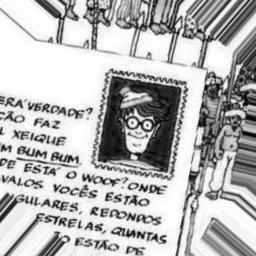 ERA VERDADE?
ÇÃO FAZ
L XEIQUE
EM BUM BUM,
DE ESTÁ O WOOF? ONDE
VALOS VOCÊS ESTÃO
GULARES, REDONDOS
ESTRELAS, QUANTAS
ÃO ESTÃO DE